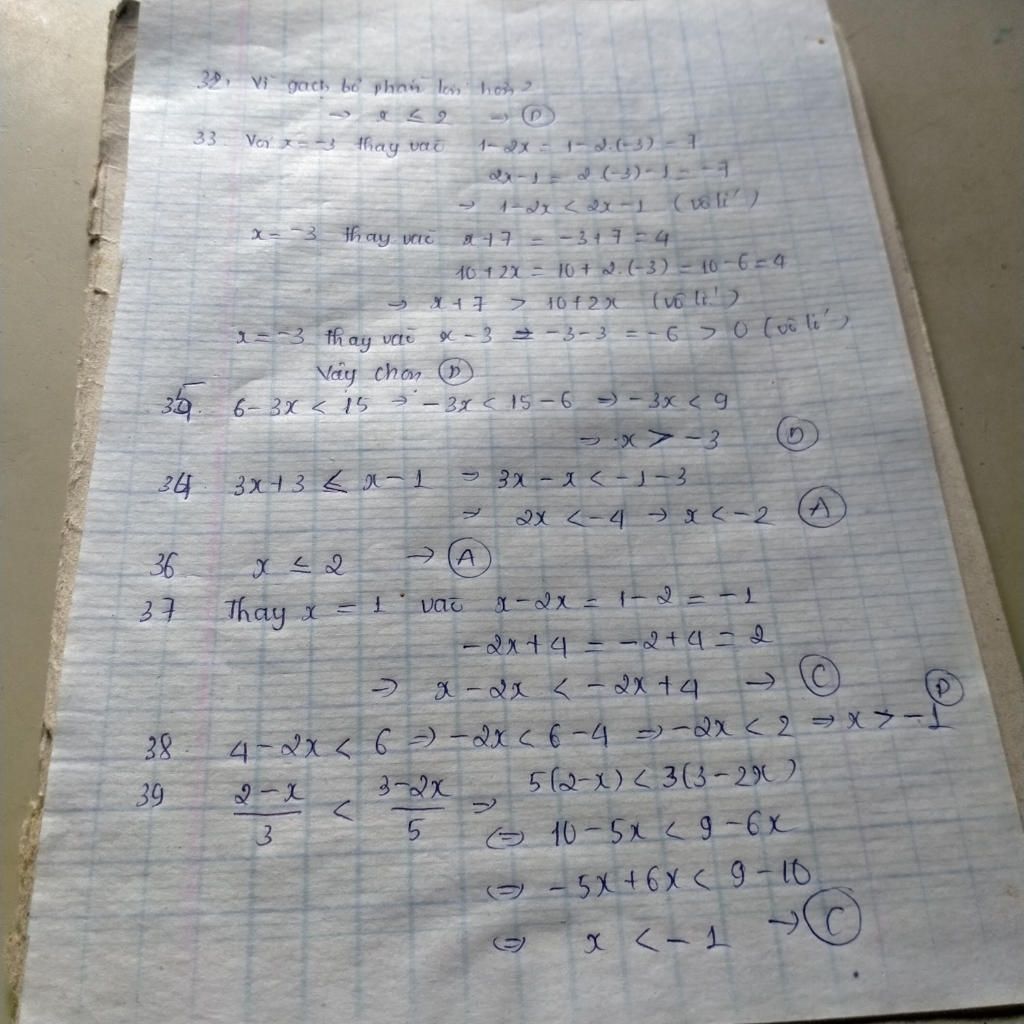 32. Vì gạch bỏ phần lớn hơn 2
→ x ≤ 2 → D
33. Với x = -3 thay vào 1-2x = 1-2.(-3) = 7
2x-1 = 2(-3)-1 = -7
⇒ 1-2x < 2x-1 (vô lí)
x = -3 thay vào x+7 = -3+7 = 4
10+2x = 10+2.(-3) = 10-6 = 4
⇒ x+7 > 10+2x (vô lí)
x = -3 thay vào x-3 = -3-3 = -6 > 0 (vô lí)
Vậy chọn D
35. 6-3x < 15 ⇒ -3x < 15-6 ⇒ -3x < 9
⇒ x > -3 D
34. 3x+3 ≤ x-1 ⇒ 3x-x < -1-3
⇒ 2x < -4 → x < -2 A
36 x ≤ 2 → A
37 Thay x = 1 vào x-2x = 1-2 = -1
-2x+4 = -2+4 = 2
⇒ x-2x < -2x+4 → C
38. 4-2x < 6 ⇒ -2x < 6-4 ⇒ -2x < 2 ⇒ x > -1 D
39 (2-x)/3 < (3-2x)/5 ⇒ 5(2-x) < 3(3-2x)
⇔ 10-5x < 9-6x
⇔ -5x+6x < 9-10
⇔ x < -1 → C